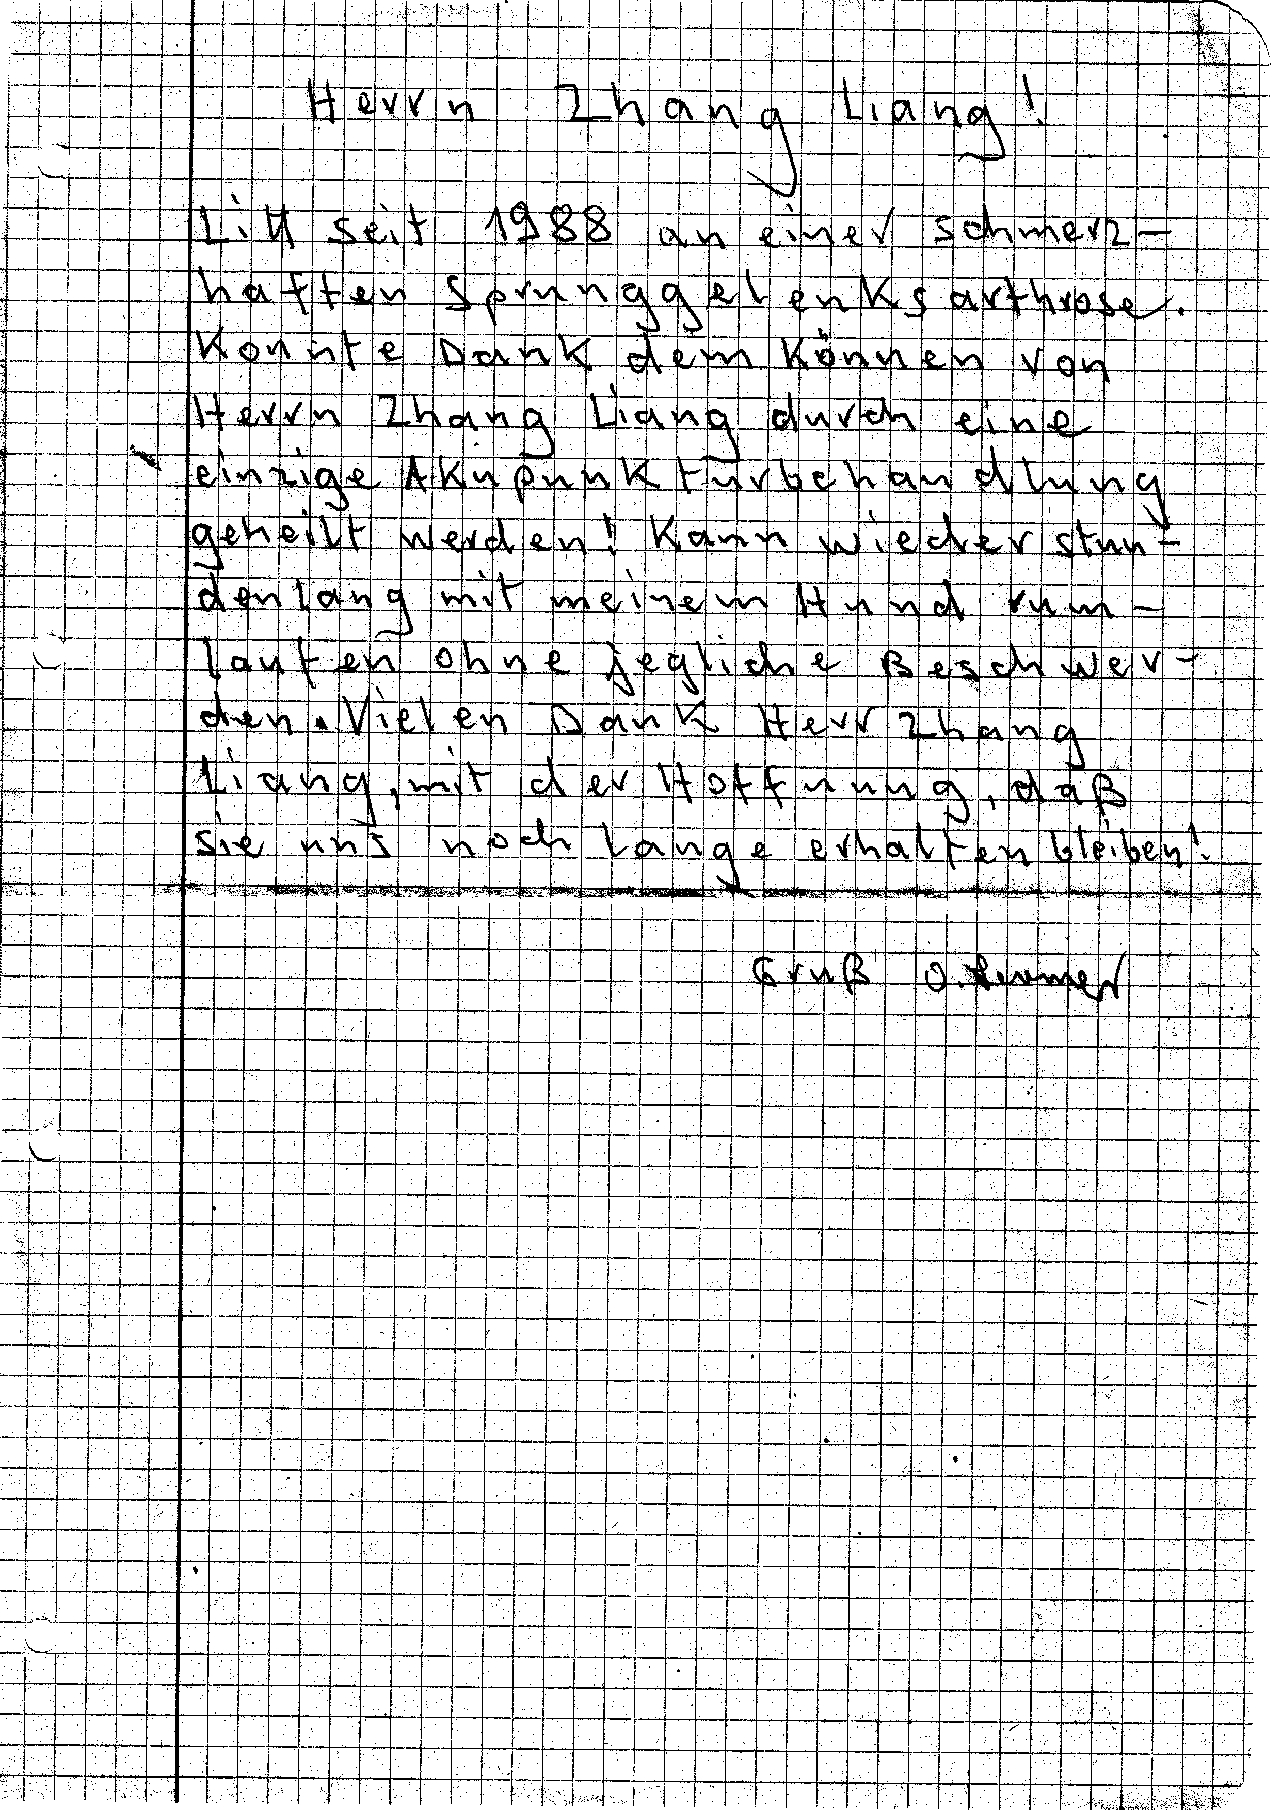 Herrn Zhang Liang!
Litt seit 1988 an einer schmerz-
haften Sprunggelenksarthrose.
Konnte Dank dem Können von
Herrn Zhang Liang durch eine
einzige Akupunkturbehandlung
geheilt werden! Kann wieder stun-
denlang mit meinem Hund rum-
laufen ohne jegliche Beschwer-
den. Vielen Dank Herr Zhang
Liang, mit der Hoffnung, daß
sie uns noch lange erhalten bleiben!
Gruß O.